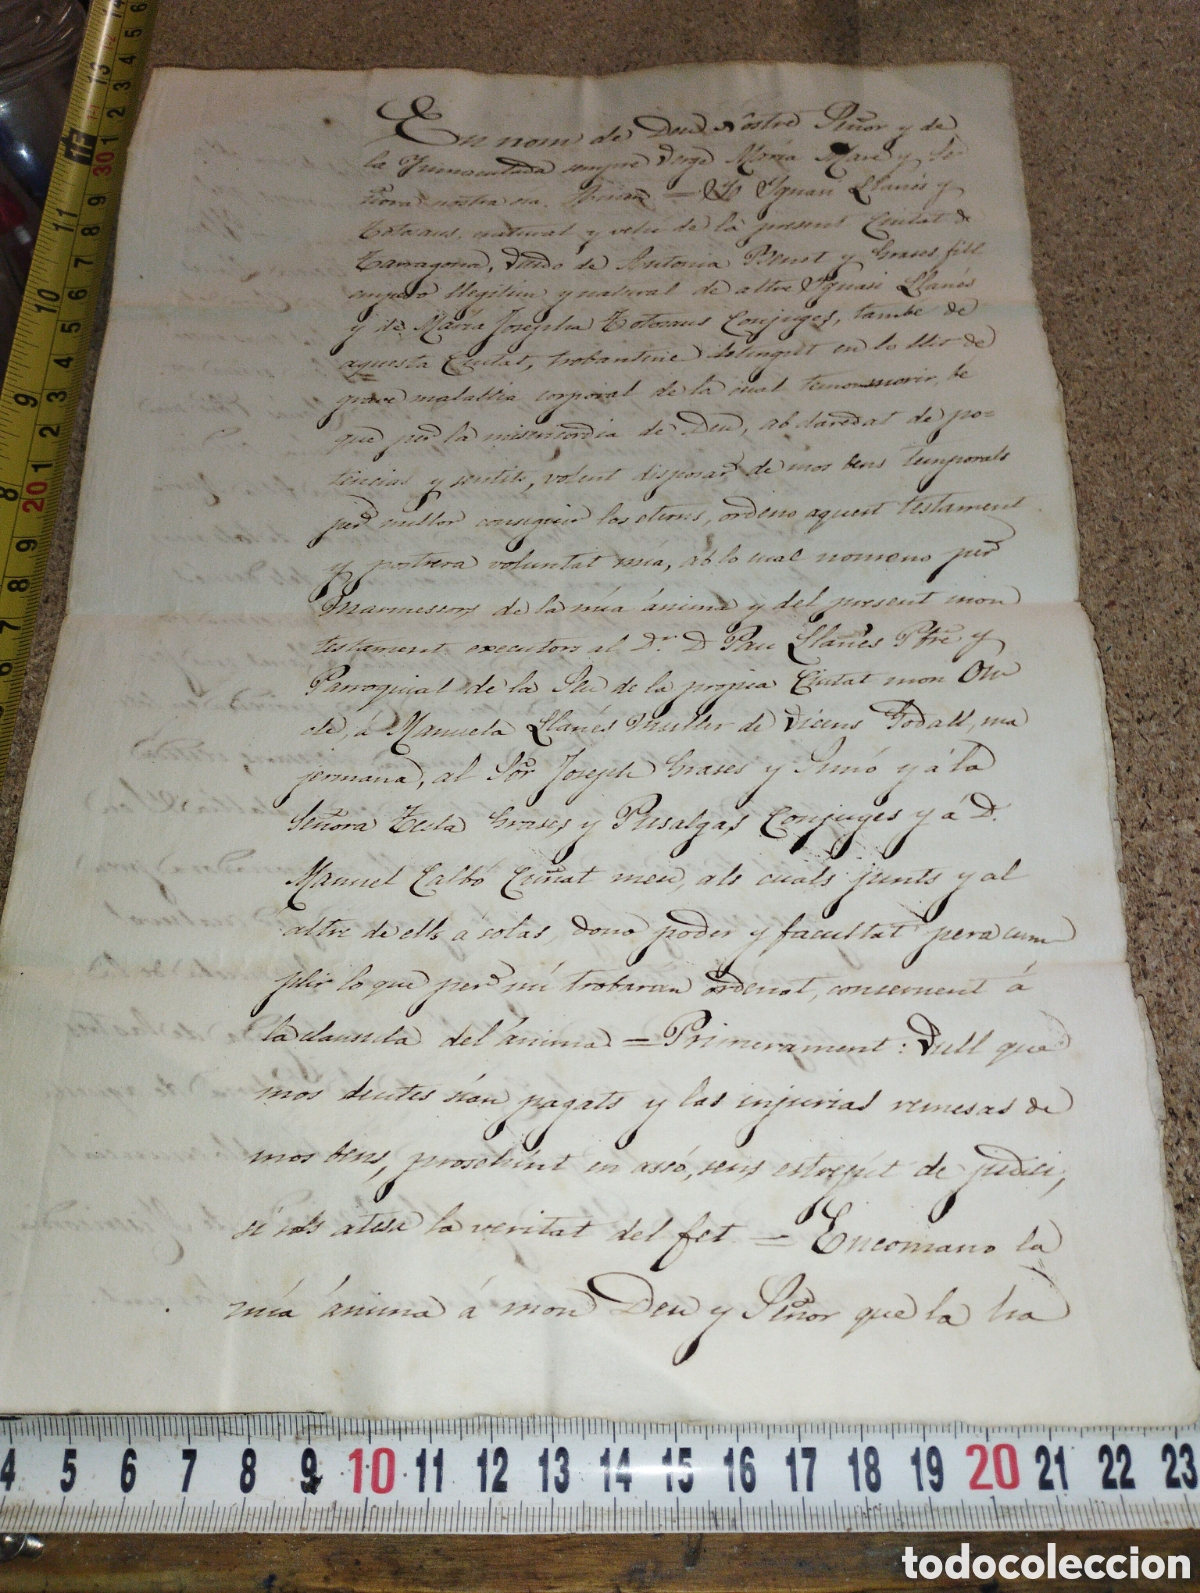 En nom de Deu Nôstre Señor y de
la Inmaculada sempre Verge Maria Mare y Se-
ñora nostra sia. Amen = Yo Ignasi Llanés y
Totosaus, natural y vehi de la present Ciutat de
Tarragona, Viudo de Antonia Benet y Grases fill
llegitim y natural de altre Ignasi Llanés
y de Maria Josepha Totosaus Conjuges, també de
aquesta Ciutat, trobantme detingut en lo llit de
grave malaltia corporal de la cual temo morir, be
que per la misericordia de Deu, ab claredat de po-
tencias y sentits, volent disposar de mos bens temporals
per millor conseguir los eterns, ordeno aquest testament
y postrera voluntat mia, ab lo cual nomeno per
Marmessors de la mia ánima y del present mon
testament executors al Dr. D Pau Llanés Pbre y
Parroquial de la Seu de la propia Ciutat mon On-
cle, á Manuela Llanés Muller de Vicens Fodall, ma
jermana, al Sor Joseph Grases y Simó y á la
Señora Tecla Grases y Pusalgas Conjuges y á D.
Manuel Calbó Cuñat meu, als cuals junts y al
altre de ells á solas, dono poder y facultat pera cum
plir lo que per mi trobarán ordenat, consernent á
la clausula del ánima = Primerament: Vull que
mos deutes sian pagats y las injurias remesas de
mos bens, prosehint en assó, sens estrepit de judici,
si sols atesa la veritat del fet = Encomano la
mia ánima á mon Deu y Señor que la ha
4 5 6 7 8 9 10 11 12 13 14 15 16 17 18 19 20 21 22 23
todocoleccion